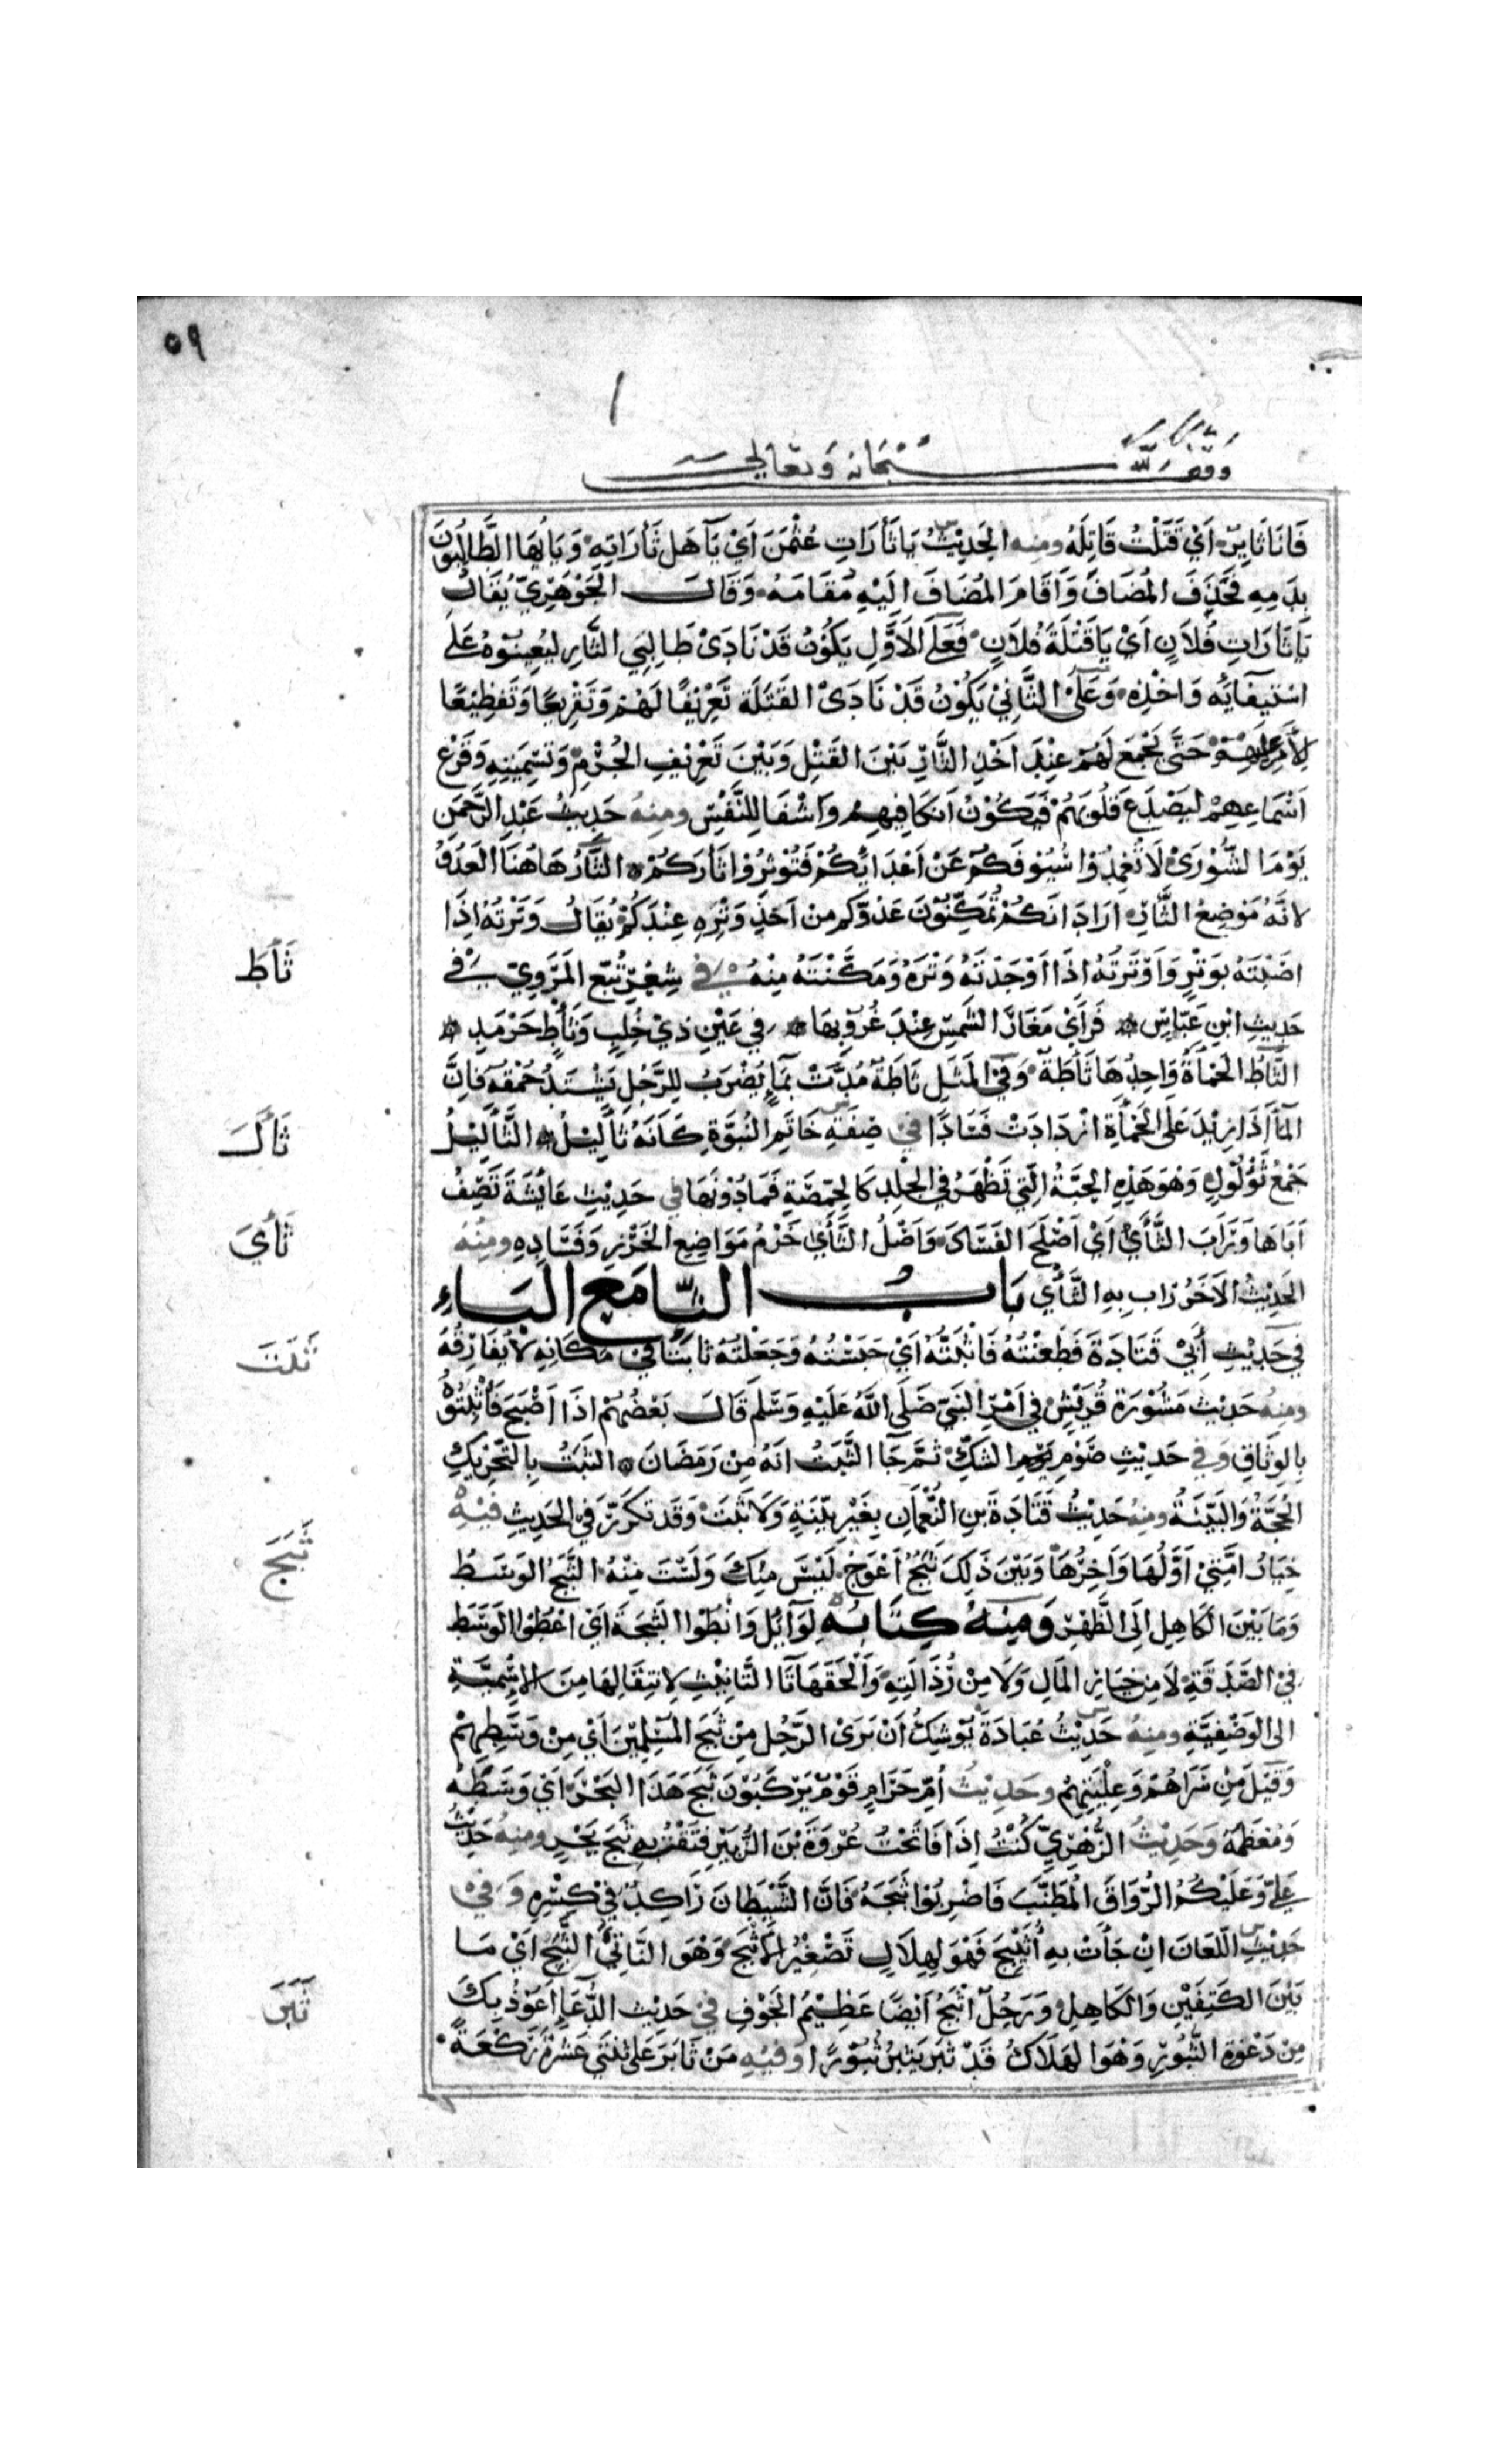 ٥٩
وقف لله سبحانه وتعالى
فَانَا ثَايِرٌ اَيْ قَتَلْتُ قَاتِلَهُ ومنه الحَدِيْثُ يَا ثَأرَاتِ عُثْمٰنَ اَيْ يَآ هَل ثَأرَاتِهِ وَيَا اُيهَا الطَّالِبُوْنَ
بِدَمِهِ فَحُذِفَ المُضَافَ وَاَقَامَ المُضَافَ اِلَيْهِ مُقَامَهُ وَقَالَ الجَوْهَرِيّ يُقَالُ
يَا ثَارَاتِ فُلَانٍ اَيْ يَا قَتَلَةَ فُلَانٍ فَعَلَى الاَوَّلِ يَكُوْنُ قَدْ نَادَىْ طَالِبِي الثَّارِ لِيُعِيْنُوْهُ عَلَى
اسْتِيفَآئِه وَاخْذِهِ وَعَلَى الثَّانِيْ يَكُوْنُ قَدْ نَادَىْ القَتَلَة تَعْرِيْفًا لَهُمْ وَتَقْرِيْعًا وَتَفظِيْعًا
لِلْأَمْرِ عَلَيْهِمْ حَتَّى يَجْمَعَ لَهُمْ عِنْدَ اَخْذِ الثَّارِ بَيْنَ القَتْلِ وَبَيْنَ تَعْرِيْفِ الجُرْمِ وَتَسْمِيَتِهِ وَقَرْعِ
اَسْمَاعِهِمْ لِيَصْدَعَ قُلُوبَهُمْ فَيَكُوْنُ اَنكَا فِيهِمُ وَاَشْفَا لِلنَّفْسِ ومِنهُ حَدِيْثُ عَبْدِ الرَّحمٰنِ
يَوْمَ الشُّوْرَىْ لَا تُغمِدُوْا سُيُوفَكُمْ عَنْ اَعْدَائِكُمْ فَتُوْتِرُوْا ثَأرَكُمْ الثَّأرُ هَاهُنَا العَدُوُّ
لانَّهُ مَوْضِعُ الثَّارِ اَرَادَ انَكُمْ تُمَكِّنُوْنَ عَدُوَّكم مِن اَخذِ وَتْرِهِ عِنْدَكُمْ يُقَالُ وَتَرْتُهُ اِذَا
اصَبْتَهُ بوَتْرٍ وَاَوْتَرتُه اِذَا اَوْجَدْتَهُ وَتْرَهُ وَمَكَّنْتَهُ مِنْهُ في شِعْرِ تُبَّع المَرْوِيِّ في
حَدِيثِ ابْنِ عَبَّاسٍ فَرَاَىْ مَغَارَ الشَمْسِ عِنْدَ غُرُوْبِهَا في عَيْنِ ذِيْ خُلُبٍ وَثَأْطٍ حَرْمَدٍ
الثَّأطُ الحَمْأَةُ وَاحِدُهَا ثَأطَةٌ وَفي المَثَلِ ثَاطَةٌ مُدَّتْ بِمَآءٍ يُضْرَبُ لِلرَّجُلِ يَشْتَدُ حُمْقُهُ فَاِنَّ
المَآ اِذَا زِيْدَ عَلَى الحَمْأَةِ ازْدَادَتْ فَسَادًا في صِفَةِ خَاتَمِ النُبُوَّةِ كَاَنَهُ ثَأليْلُ الثَّأليْلُ
جَمْعُ ثُؤْلُوْلٍ وَهُوَ هَذِهِ الحَبَّةُ الَتِي تَظْهَرُ فِي الجْلدِ كَالحِمَّصَةِ فَمَا دُوْنَهَا في حَدِيْثِ عَائِشَةَ تَصِفُ
اَبَاهَا وَرَأبَ الثَّأىْ اَيْ اَصْلَحَ الفَسَادَ وَاَصْلُ الثَّأيْ خَرْمُ مَوَاضِعِ الخَرْزِ وَفَسَادِهِ ومنهُ
الحَدِيْثُ الآخَرُ رَاب بِهِ الثَّأي بَابُ الثَّا مَعَ البَاءِ
فِي حَدِيْثِ أبيْ قَتَادَةَ فَطَعَنْتُهُ فَاَثْبَتُّه اَيْ حَبَسْتُهُ وَجَعَلْتُهُ ثَابتًا فيْ مَكَانِهِ لَا يُفَارِقُهُ
ومنِهُ حَدِيْثُ مَشُوْرَةِ قُرَيْشٍ في اَمْرِ النَبِيّ صَلَى اللهُ عَلَيْهِ وَسَلَّمَ قَالَ بَعْضُهُمْ اِذَا اَصْبَحَ فَأَثْبِتُوْهُ
بِالوِثَاقِ وَفي حَدِيْثِ صَوْمِ يَوْمِ الشَكِّ ثُمَّ جَآ الثَّبَتُ انَهُ مِنْ رَمَضَانَ الثَبَتُ بِالتَحْرِيْكِ
الحُجَّةُ وَالبَيِّنَةُ ومنِهُ حَدِيْثُ قَتَادَةَ بَنِ النُّعْمَانِ بِغَيْرِ بَيِّنَةٍ وَلَا ثَبَتَ وَقَدْ تَكَرَّرَ في الحَدِيْثِ فيْهِ
خِيَارُ امَّتِيْ اَوَّلُهَا وَآخِرُهَا وَبَيْنَ ذَلِكَ ثَبَجٌ اَعْوَجُ لَيْسَ مِنْكَ وَلَسْتَ مِنْهُ الثَّبَجُ الوَسَطُ
وَمَا بَيْنَ الكَاهِلِ اِلَى الظَّهْرِ وَمِنْهُ كِتَابُهُ لِوَآئِل وَانْطُوا الثَبَجَةَ اَيْ اعْطُوا الوَسَطَ
فِي الصَّدَقَةِ لَا مِنْ خِيَارِ المَالِ وَلَا مِنْ رُذَالَتِهِ وَاَلْحَقَهَا تَا التَّانِيْثِ لِانتِقَالِهَا مِنَ الاِسْمِيَّةِ
الى الوَصْفِيَّةِ ومنِهُ حَدِيْثُ عُبَادَةَ يُوْشِكُ اَنْ يُرَىْ الرَّجُل مِنْ ثَبَجِ المُسْلِمِيْنَ اَيْ مِنْ وَسَطِهِمْ
وَقِيْلَ مِنْ سَرَاهُمْ وَعِلْيَتِهِمْ وحَدِيْثُ أُمِّ حَرَامٍ قَوْمٌ يَرْكَبُوْنَ ثَبَجَ هَذَا البَحْرِ اَيْ وَسَطَهُ
وَمُعْظَمَهُ وَحَدِيْثُ الزُّهْرِيِّ كُنْتُ اِذَا فَاتَحْتُ عُرْوَةَ بْنَ الزُّبَيْرِ فَتَقْتُ بهِ ثَبَجَ بَحْرٍ ومِنهُ حَدِيْثُ
عَلِيّ وَعَلَيْكُمُ الرِّوَاقَ المُطَنَّبَ فَاضْرِبُوا ثَبَجَهُ فَانَّ الشَّيْطَانَ رَاكِدٌ فيْ كِسْرِهِ وَفيْ
حَدِيْثِ اللِّعَانِ اِنْ جَأَتْ بِهِ أُثَيْبِجَ فَهْوَ لِهِلَالٍ تَصْغِيْرُ الاَثْبَجَ وَهْوَ النَّاتِئُ الثَّبَجِ اَيْ مَا
بَيْنَ الكَتِفَيْنِ وَالكَاهِلِ وَرَجُلٌ اَثْبَجُ اَيْضًا عَظِيْمُ الجَوْفِ في حَدِيْثِ الدُّعَآءِ اَعُوْذُ بِكَ
مِنْ دَعْوَةِ الثُّبُوْرِ وَهْوَ الهَلَاكُ قَدْ ثَبَرَ يَثبُرُ ثُبُوْرًا وفيْهِ مَنْ ثَابَرَ عَلى ثِنْتَيْ عَشْرَةَ رَكْعَةً
ثَأَطَ
ثَأَلَ
ثَأَيَ
ثَبَتَ
ثَبَجَ
ثَبَرَ